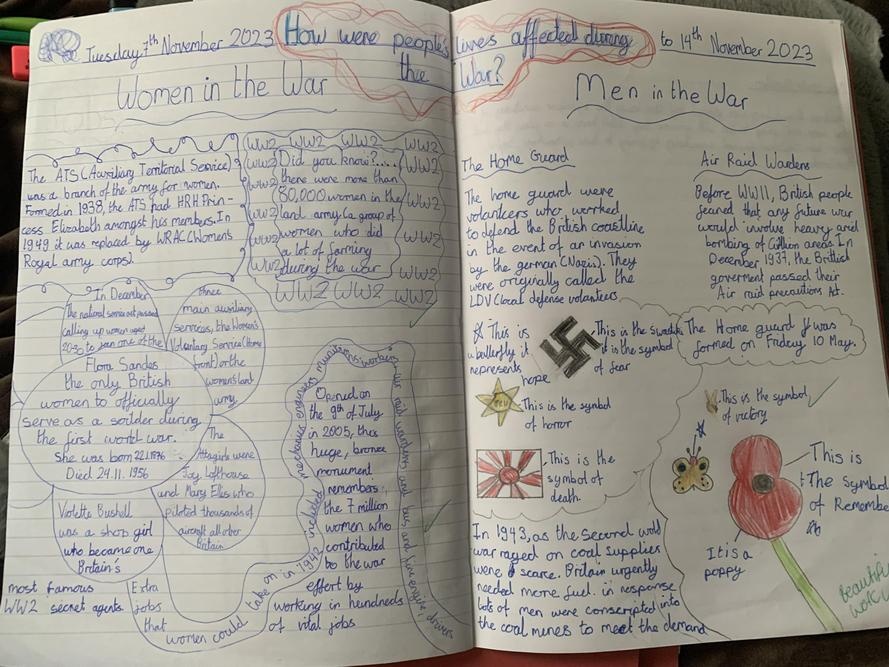 Tuesday 7th November 2023
How were people's lives affected during the War?
to 14th November 2023
Women in the War
The ATS (Auxiliary Territorial Service)
was a branch of the army for women.
Formed in 1938, the ATS had HRH Prin-
cess Elizabeth amongst his members. In
1949 it was replaced by WRAC (Women's
Royal army corps)
WW2 WW2 WW2 WW2
WW2 Did you know?.... WW2
there were more than
WW2 80,000 women in the WW2
WW2 land army (a group of WW2
WW2 women who did WW2
a lot of farming
WW2 during the war WW2
WW2 WW2 WW2 WW2
In December
The national service act passed
calling up women aged
20-30 to join one of the
three
main auxiliary
services, the Women's
Voluntary Service (Home
front) or the
women's land
army.
Flora Sandes
the only British
women to officially
serve as a soilder during
the first world war.
She was born 22.1.1876
Died 24.11.1956
The
Attagirls were
Joy Lofthouse
and Mary Ellis who
piloted thousands of
aircraft all over
Britain
Violette Bushell
was a shop girl
who became one
Britain's
most famous
WW2 secret agents.
Extra
jobs
that
women could take on in 1942 included mechanics engineers munitions workers air raid wardens and bus and fire engine drivers
Opened on
the 9th of July
in 2005, this
huge, bronze
monument
remembers
the 7 million
women who
contributed
to the war
effort by
working in hundreds
of vital jobs
Men in the War
The Home Guard
The home guard were
volunteers who worked
to defend the British coastline
in the event of an invasion
by the german (Nazis). They
were originally called the
LDV (local defense volunteers
Air Raid Wardens
Before WWII, British people
feared that any future war
would involve heavy and
bombing of civilian areas. In
December 1937, the British
goverment passed their
Air raid precautions At.
The Home guard was
formed on Friday 10 May.
This is
a butterfly it
represents
hope
This is the Swastika
it is the symbol
of fear
This is the symbol
of horror
This is the
symbol of
death.
This is the symbol
of victory
This is
The Symbol
of Remember
It is a
poppy
In 1943, as the second wold
war rayed on coal supplies
were scarce. Britain urgently
needed more fuel. in response
lots of men were conscripted into
the coal mines to meet the demand
Beautiful
work